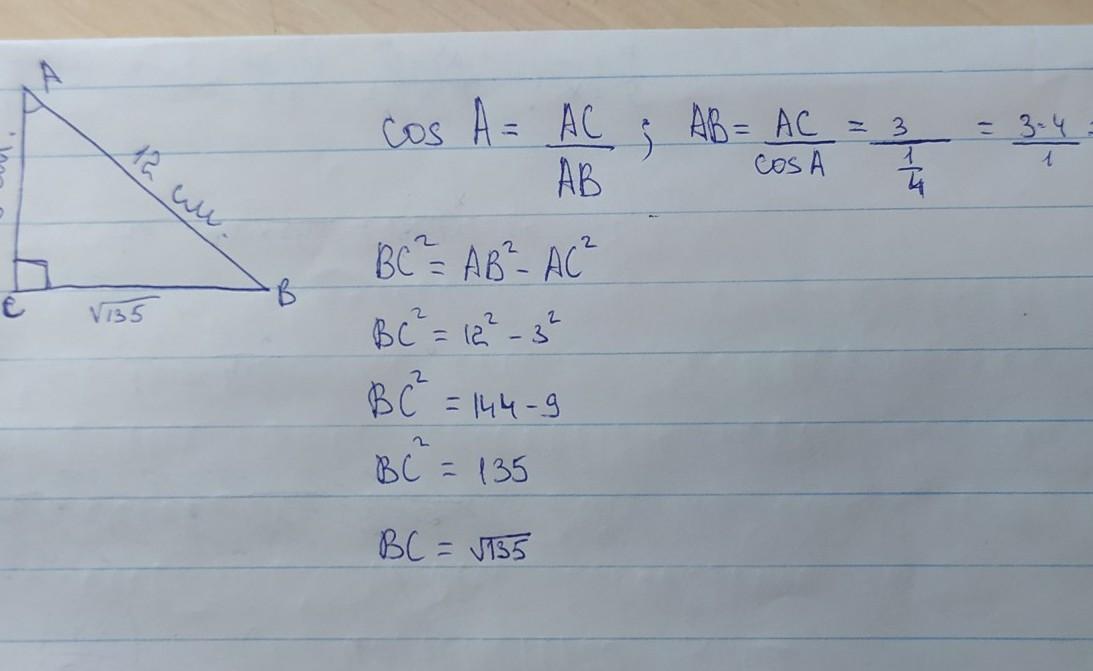 A
12 см.
C
B
√135
cos A = AC/AB ; AB = AC/cosA = 3/(1/4) = 3·4/1 =
BC² = AB² - AC²
BC² = 12² - 3²
BC² = 144 - 9
BC² = 135
BC = √135